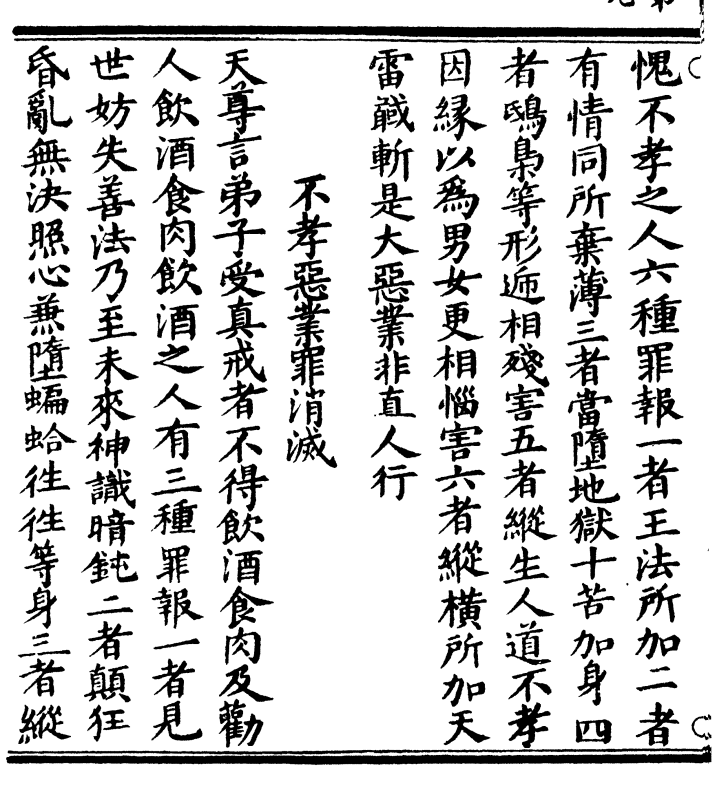 愧不孝之人六種罪報一者王法所加二者
有情同所棄薄三者當墮地獄十苦加身四
者鴟梟等形逓相殘害五者縱生人道不孝
因緣以爲男女更相惱害六者縱橫所加天
雷戩斬是大惡業非直人行
不孝惡業罪消滅
天尊言弟子受真戒者不得飲酒食肉及勸
人飲酒食肉飲酒之人有三種罪報一者見
世妨失善法乃至未來神識暗鈍二者顛狂
昏亂無決照心兼墮蝙蛤徃徃等身三者縱